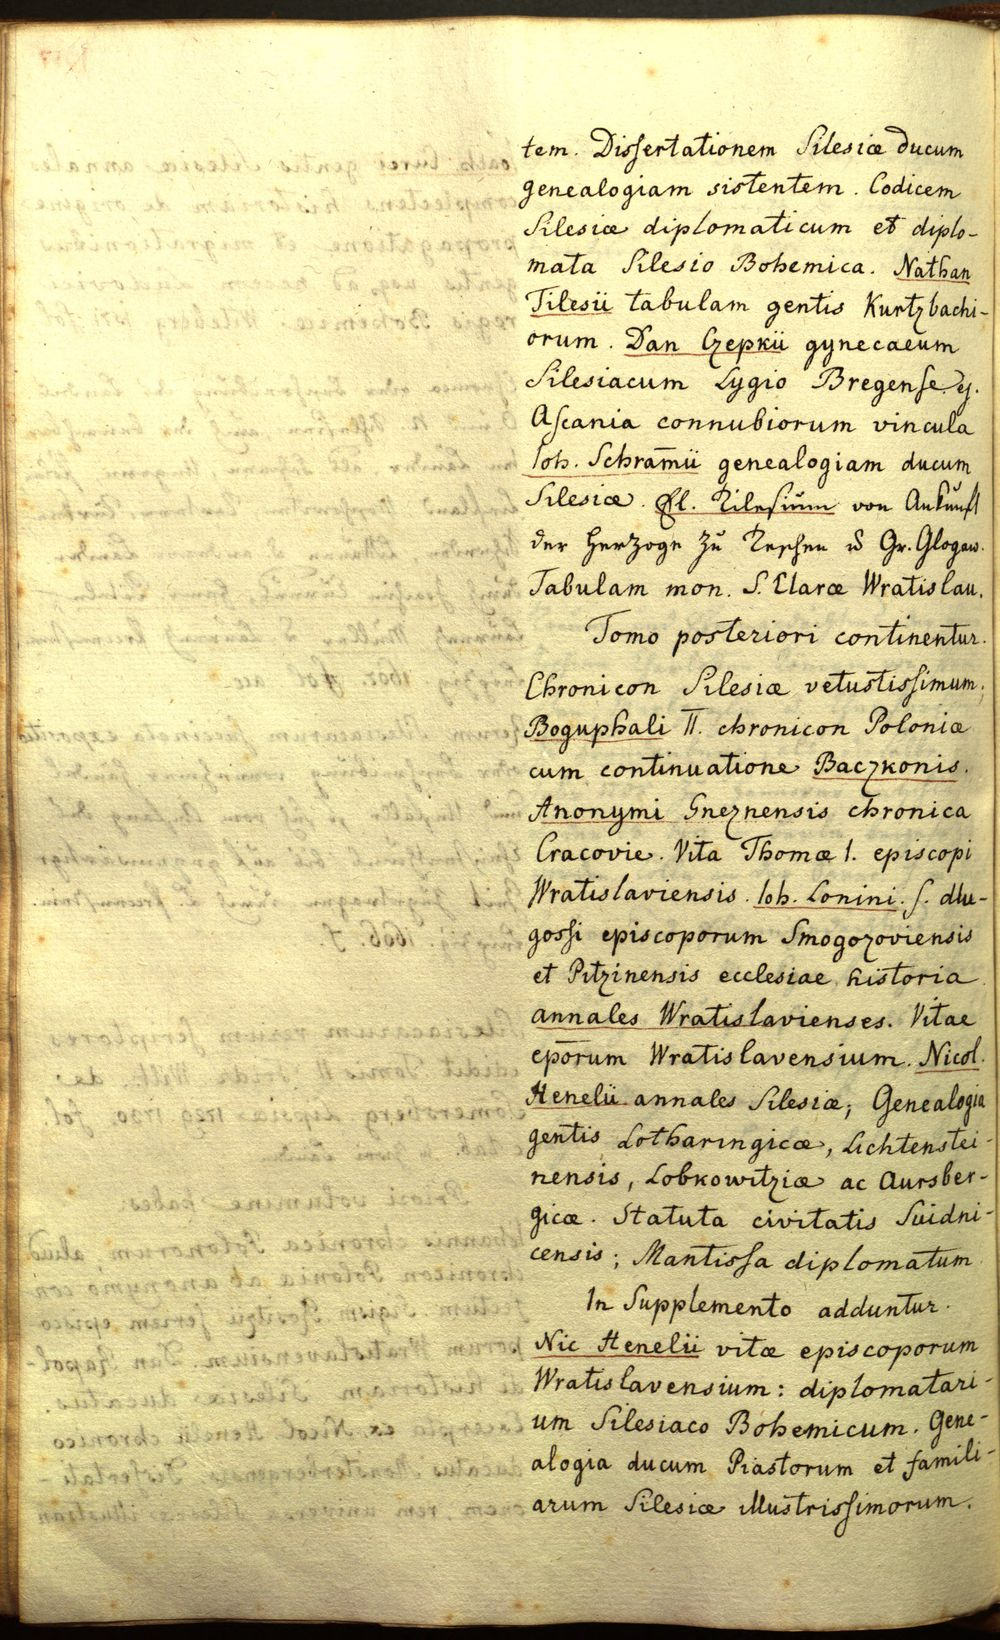 tem. Dissertationem Silesiæ ducum
genealogiam sistentem. Codicem
Silesiæ diplomaticum et diplo-
mata Silesio Bohemica. Nathan
Tilesii tabulam gentis Kurtzbachi-
orum. Dan Czepkii gynecaeum
Silesiacum Lygio Bregense. ej.
Ascania connubiorum vincula
Ioh. Schram̄ii genealogiam ducum
Silesiæ. El. Tilesium von Ankunft
der Herzoge zu Teschen u Gr. Glogau.
Tabulam mon. S. Claræ Wratislau.
Tomo posteriori continentur.
Chronicon Silesiæ vetustissimum;
Boguphali II. chronicon Poloniæ
cum continuatione Baczkonis.
Anonymi Gneznensis chronica
Cracovie. Vita Thomæ I. episcopi
Wratislaviensis. Ioh. Lonini. s. dlu-
gossi episcoporum Smogozoviensis
et Pitzinensis ecclesiae historia.
annales Wratislavienses. Vitae
epōrum Wratislavensium. Nicol.
Henelii annales Silesiæ; Genealogia
gentis Lotharingicæ, Lichtenstei-
nensis, Lobkowitziæ ac Aursber-
gicæ. Statuta civitatis Suidni-
censis; Mantissa diplomatum
In Supplemento adduntur.
Nic Henelii vitæ episcoporum
Wratislavensium: diplomatari-
um Silesiaco Bohemicum. Gene-
alogia ducum Piastorum et famili-
arum Silesiæ illustrissimorum.